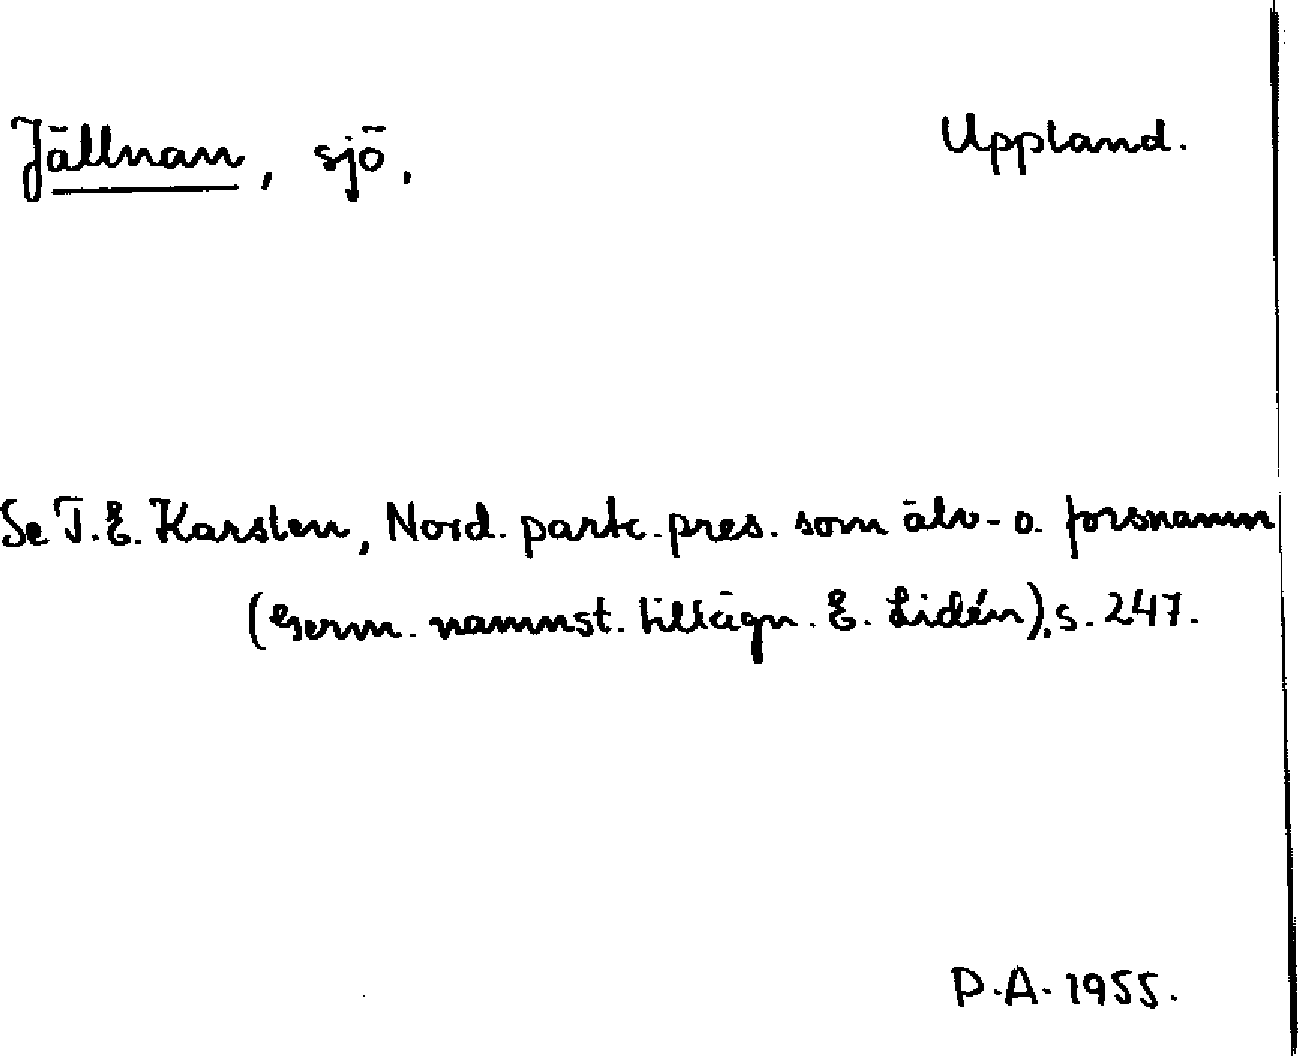 Jällnan, sjö.
Uppland.
Se T.E. Karsten, Nord. partc. pres. som älv- o. forsnamn
(Germ. namnst. tillägn. E. Lidén), s. 247.
P.A. 1955.